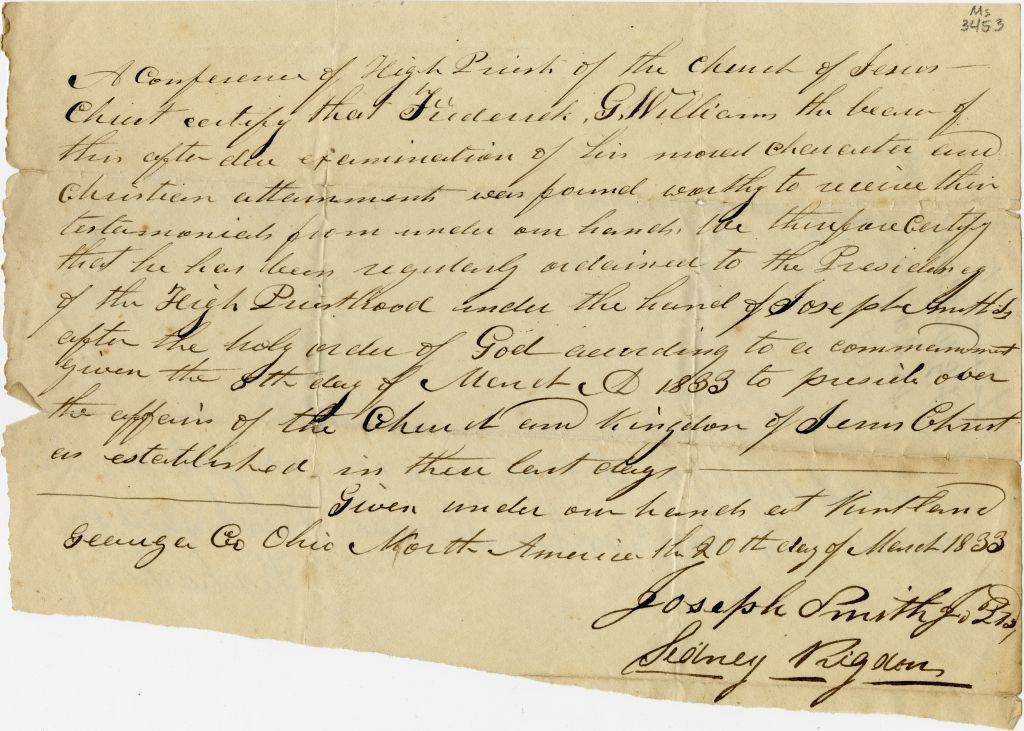 Ms
3453
A Conference of High Priests of the Church of Jesus
Christ certify that Frederick G. Williams the bearer of
this after due examination of his moral character and
Christian attainments was found worthy to receive their
testamonials from under our hands. We therefore Certify
that he has been regularly ordained to the Presidency
of the High Priesthood under the hand of Joseph Smith
after the holy order of God according to a commandment
given the 8th day of March AD 1833 to preside over
the affairs of the Church and Kingdom of Jesus Christ
as established in these last days
Given under our hands at Kirtland
Geauga Co Ohio North America the 20th day of March 1833
Joseph Smith Jr
Sidney Rigdon